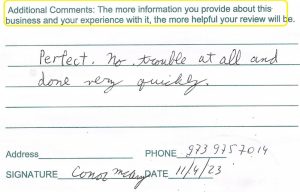 Additional Comments: The more information you provide about this
business and your experience with it, the more helpful your review will be.
Perfect. No trouble at all and
done very quickly.
Address PHONE 973 975 7014
SIGNATURE Conor DATE 11/4/23